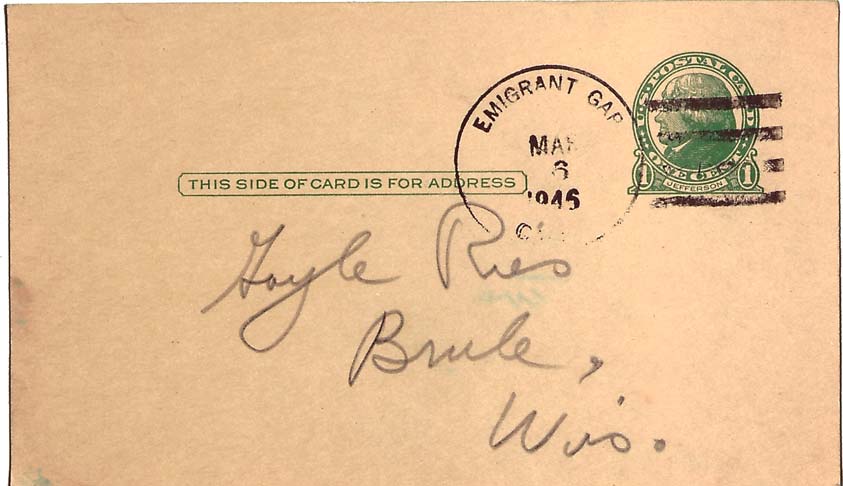 EMIGRANT GAP
MAR
6
1946
U.S. POSTAL CARD
ONE CENT
1 JEFFERSON 1
THIS SIDE OF CARD IS FOR ADDRESS
Gayle Ries
Brule,
Wis.